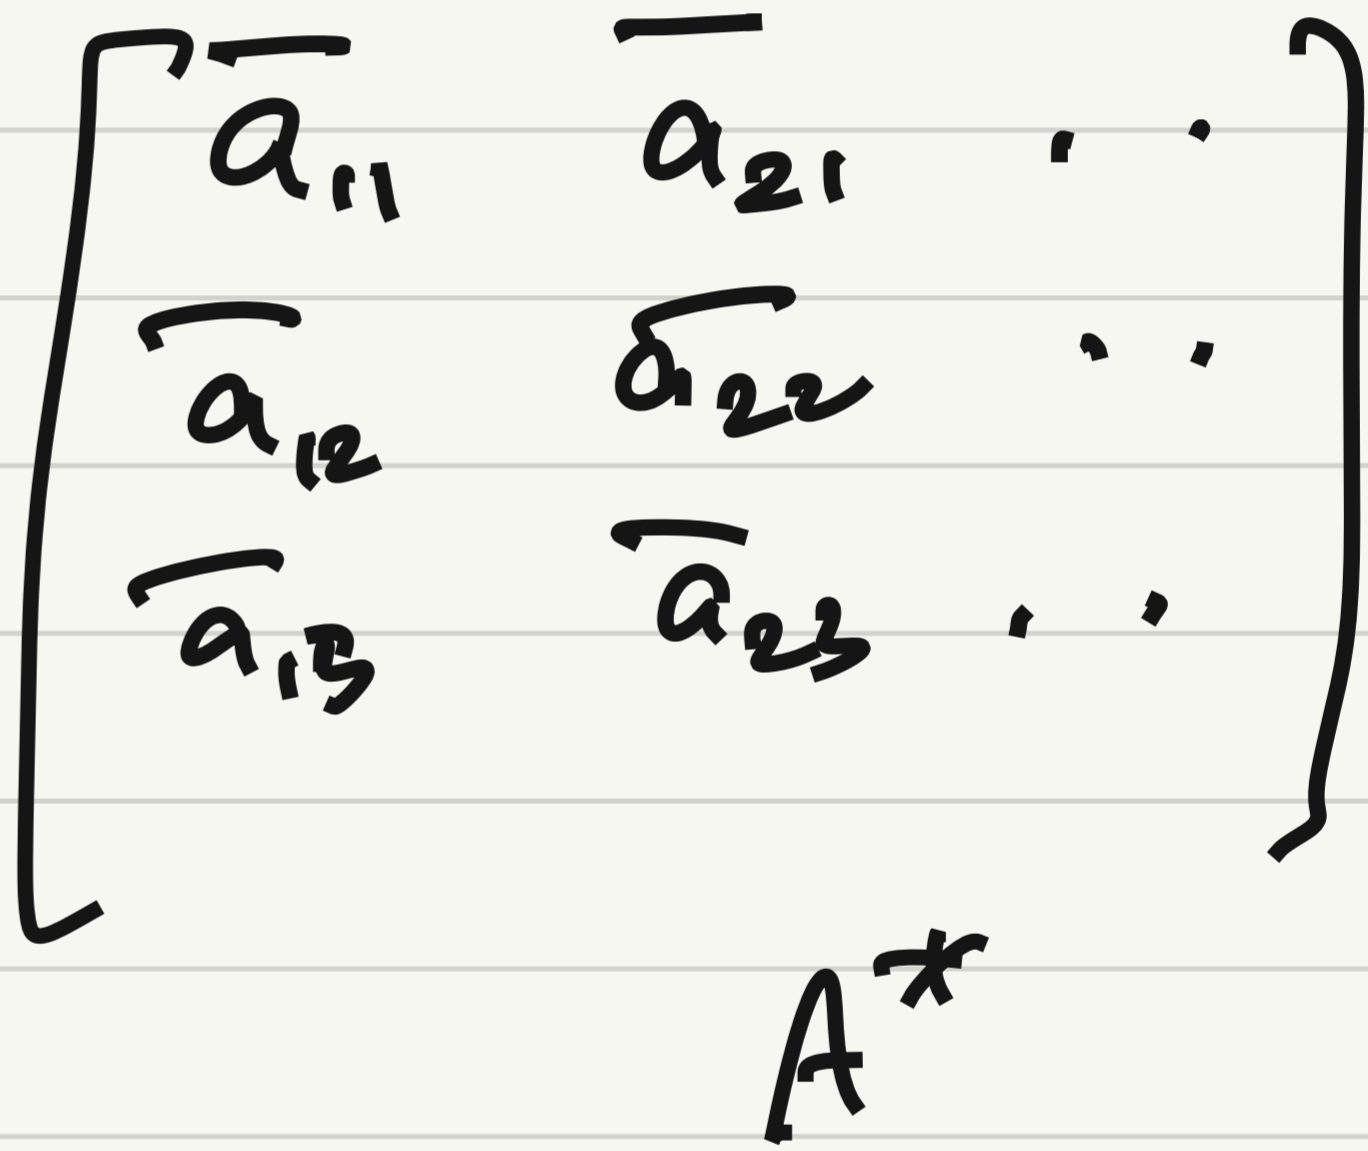 [ a̅₁₁ a̅₂₁ . .
a̅₁₂ a̅₂₂ . .
a̅₁₃ a̅₂₃ . . ]
A*